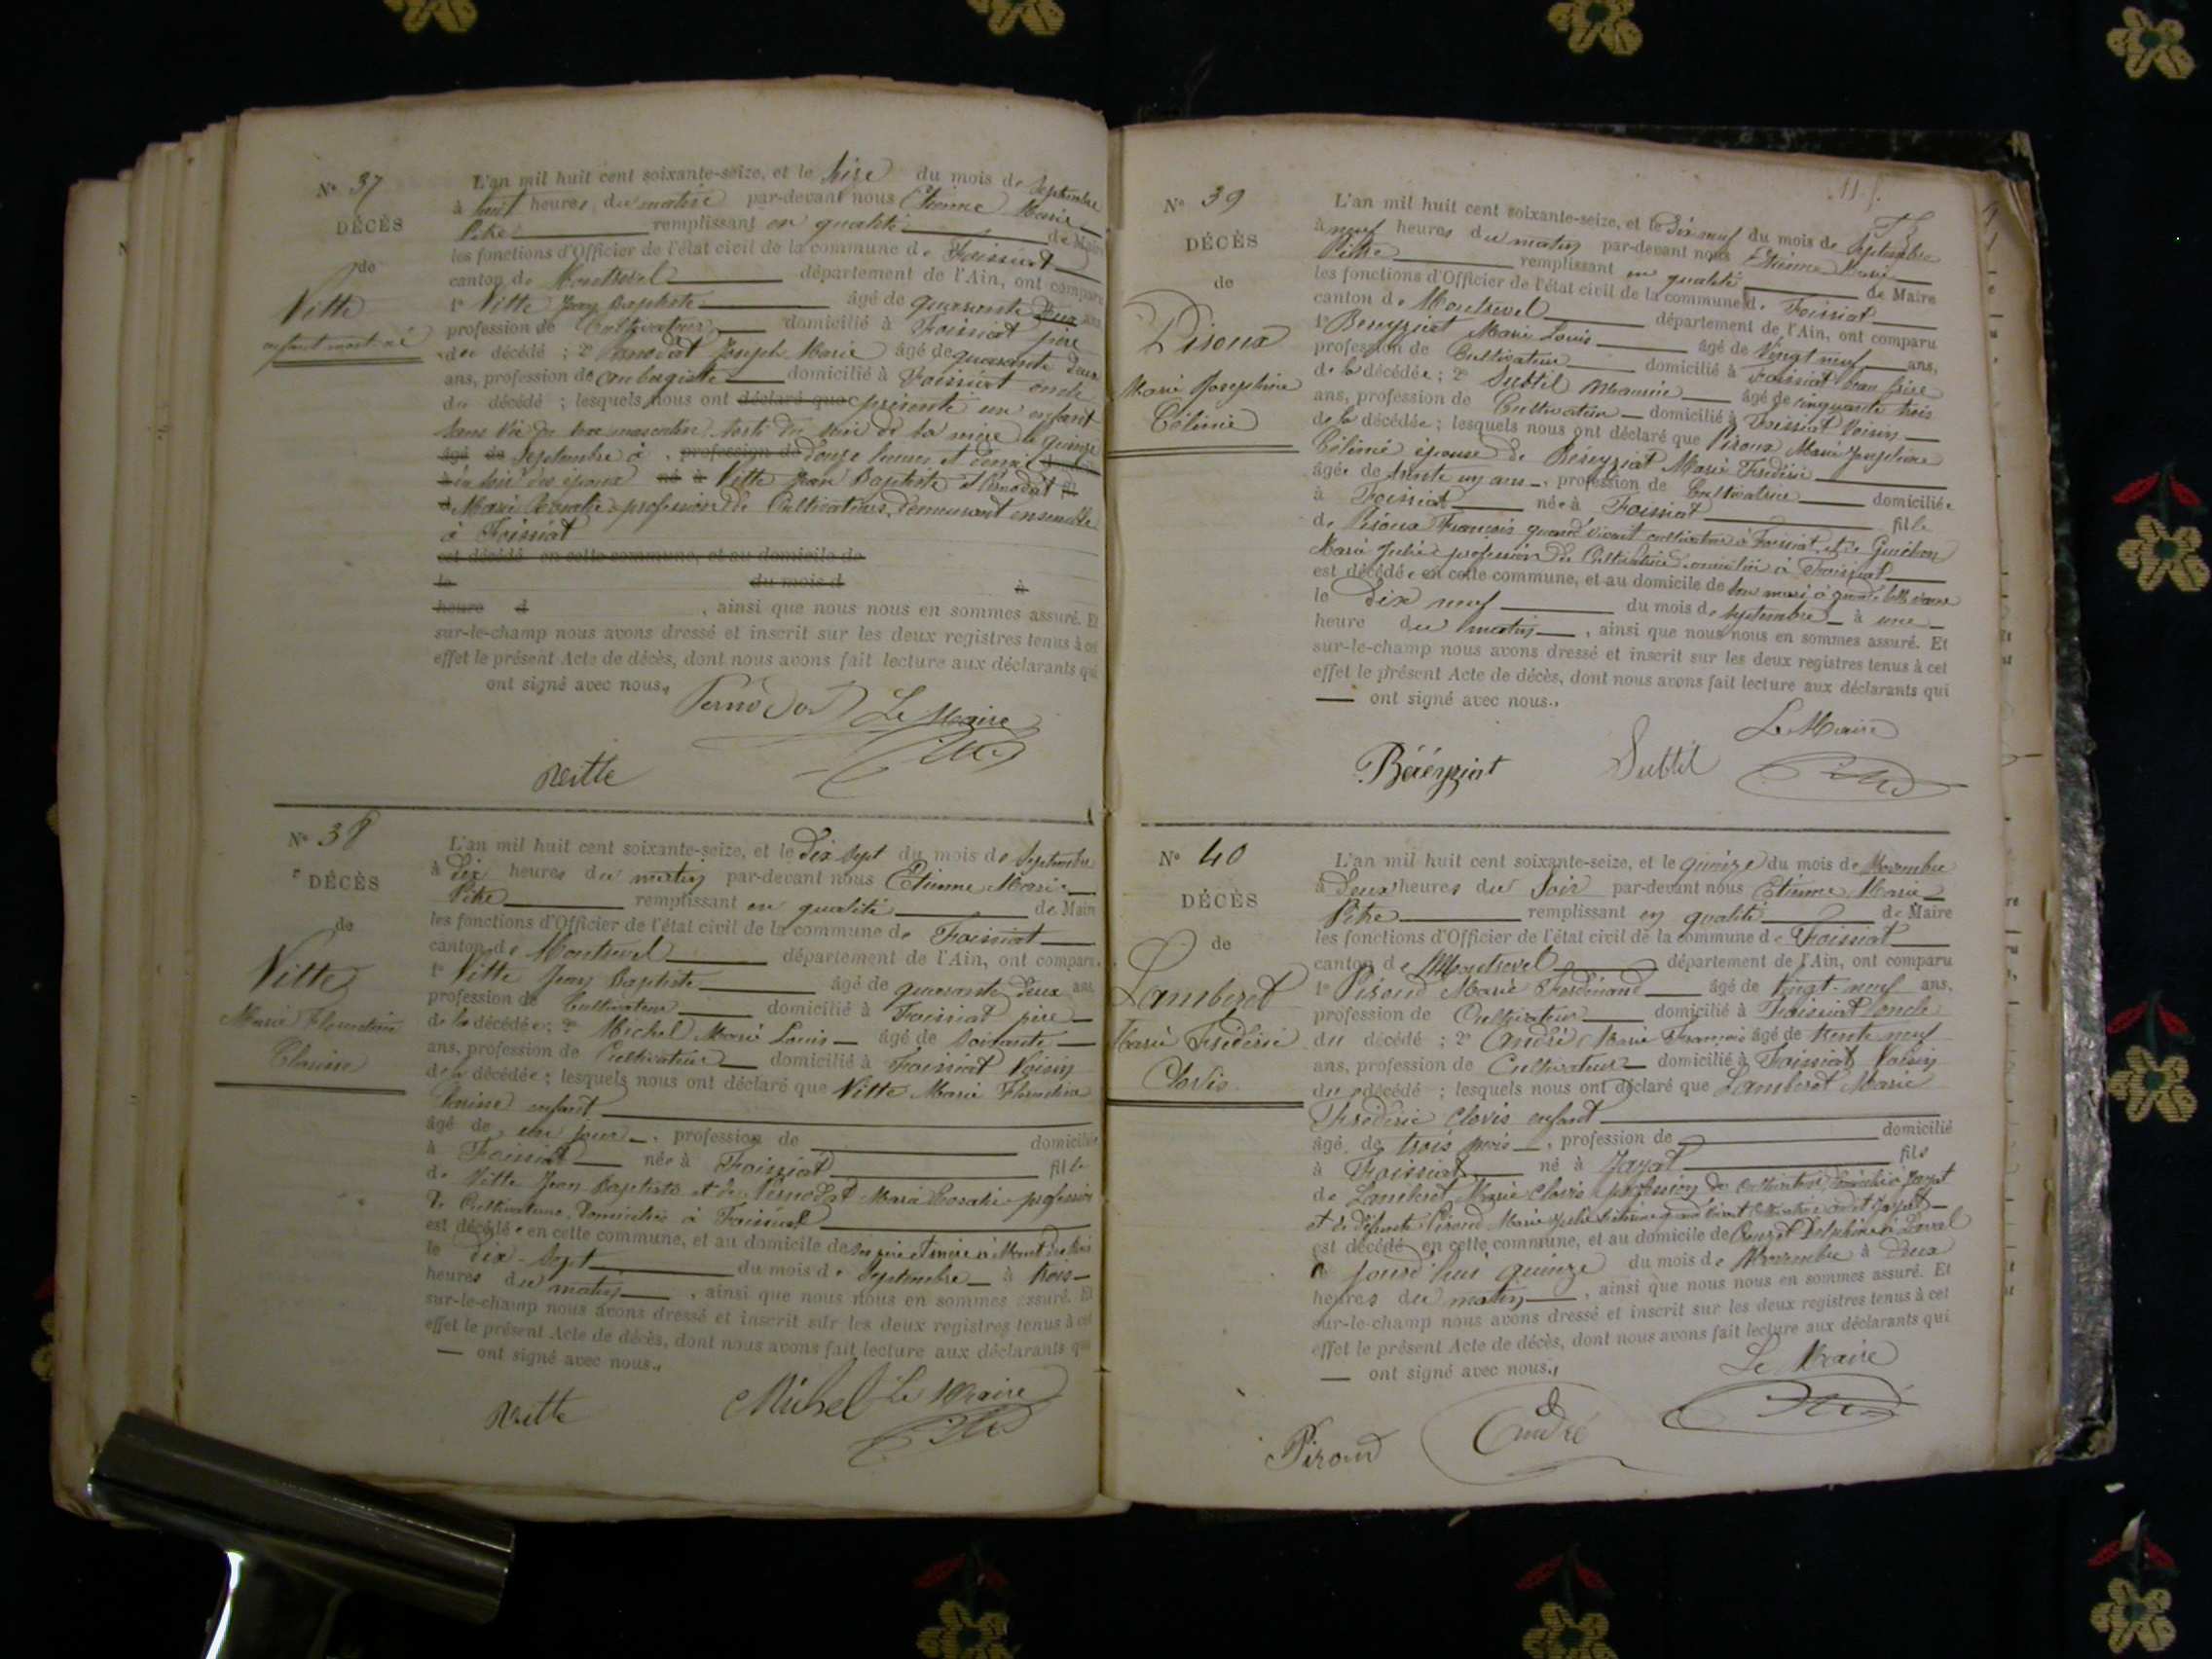 N° 37
DÉCÈS
de
Vitte
enfant mort né
L'an mil huit cent soixante-seize, et le seize du mois de Septembre
à huit heures du matin par-devant nous Etienne Marie
Pitre remplissant en qualité de Maire
les fonctions d'Officier de l'état civil de la commune de Foissiat
canton de Montrevel département de l'Ain, ont comparu
1° Vitte Jean Baptiste âgé de quarante deux ans,
profession de Cultivateur domicilié à Foissiat père
du décédé ; 2° Pernodat Joseph Marie âgé de quarante deux
ans, profession de aubergiste domicilié à Foissiat oncle
du décédé ; lesquels nous ont déclaré que présenté un enfant
sans vie du sexe masculin sorti du sein de sa mère le quinze
âgé de Septembre à profession de douze heures et demie
du soir des époux né à Vitte Jean Baptiste et Pernodat
Marie Rosalie profession de Cultivateurs, demeurant ensemble
à Foissiat
est décédé en cette commune, et au domicile de
le du mois d à
heure d , ainsi que nous nous en sommes assuré. Et
sur-le-champ nous avons dressé et inscrit sur les deux registres tenus à cet
effet le présent Acte de décès, dont nous avons fait lecture aux déclarants qui
ont signé avec nous.
Pernodat Le Maire
Vitte
N° 38
DÉCÈS
de
Vitte
Marie Florentine
Clarine
L'an mil huit cent soixante-seize, et le dix sept du mois de Septembre
à dix heures du matin par-devant nous Etienne Marie
Pitre remplissant en qualité de Maire
les fonctions d'Officier de l'état civil de la commune de Foissiat
canton de Montrevel département de l'Ain, ont comparu
1° Vitte Jean Baptiste âgé de quarante deux ans,
profession de Cultivateur domicilié à Foissiat père
de la décédée ; 2° Michel Marie Louis âgé de soixante
ans, profession de Cultivateur domicilié à Foissiat Voisin
de la décédée ; lesquels nous ont déclaré que Vitte Marie Florentine
Clarine enfant
âgé de un jour , profession de domiciliée
à Foissiat née à Foissiat fille
de Vitte Jean Baptiste et de Pernodat Marie Rosalie profession
de Cultivateurs, domiciliés à Foissiat
est décédée en cette commune, et au domicile de ses père et mère à
le dix-sept du mois de Septembre à trois
heures du matin , ainsi que nous nous en sommes assuré. Et
sur-le-champ nous avons dressé et inscrit sur les deux registres tenus à cet
effet le présent Acte de décès, dont nous avons fait lecture aux déclarants qui
ont signé avec nous.
Vitte Michel Le Maire
N° 39
DÉCÈS
de
Piroux
Marie Joséphine
Célinie
L'an mil huit cent soixante-seize, et le dix neuf du mois de Septembre
à neuf heures du matin par-devant nous Etienne Marie
Pitre remplissant en qualité de Maire
les fonctions d'Officier de l'état civil de la commune de Foissiat
canton de Montrevel département de l'Ain, ont comparu
1° Bereyziat Marie Louis âgé de Vingt neuf ans,
profession de Cultivateur domicilié à Foissiat beau frère
de la décédée ; 2° Subtil âgé de cinquante trois
ans, profession de Cultivateur domicilié à Foissiat Voisin
de la décédée ; lesquels nous ont déclaré que Piroux Marie Joséphine
Célinie épouse de Béréyziat Marie Frédéric
âgée de trente un ans , profession de Cultivatrice domiciliée
à Foissiat née à Foissiat fille
de Piroux François quand vivait cultivateur à Foissiat et de
Marie Julie profession de Cultivatrice domiciliée à Foissiat
est décédée en cette commune, et au domicile de son mari à
le dix neuf du mois de septembre à une
heure du matin , ainsi que nous nous en sommes assuré. Et
sur-le-champ nous avons dressé et inscrit sur les deux registres tenus à cet
effet le présent Acte de décès, dont nous avons fait lecture aux déclarants qui
ont signé avec nous.
Le Maire
Béréyziat Subtil
N° 40
DÉCÈS
de
Lamberet
Marie Fréderic
Clovis
L'an mil huit cent soixante-seize, et le quinze du mois de Novembre
à deux heures du soir par-devant nous Etienne Marie
Pitre remplissant en qualité de Maire
les fonctions d'Officier de l'état civil de la commune de Foissiat
canton de Montrevel département de l'Ain, ont comparu
1° Piroud Marie Ferdinand âgé de Vingt-neuf ans,
profession de Cultivateur domicilié à Foissiat oncle
du décédé ; 2° André Marie François âgé de trente neuf
ans, profession de Cultivateur domicilié à Foissiat Voisin
du décédé ; lesquels nous ont déclaré que Lamberet Marie
Fréderic Clovis enfant
âgé de trois mois , profession de domicilié
à Foissiat né à Jayat fils
de Lamberet Marie Clovis profession de Cultivateur domicilié à Jayat
et de défunte Piroud Marie Julie quand vivait Cultivatrice audit Jayat
est décédé en cette commune, et au domicile de Delphine à Laval
jourd'hui quinze du mois de Novembre à deux
heures du matin , ainsi que nous nous en sommes assuré. Et
sur-le-champ nous avons dressé et inscrit sur les deux registres tenus à cet
effet le présent Acte de décès, dont nous avons fait lecture aux déclarants qui
ont signé avec nous.
Le Maire
Piroud André